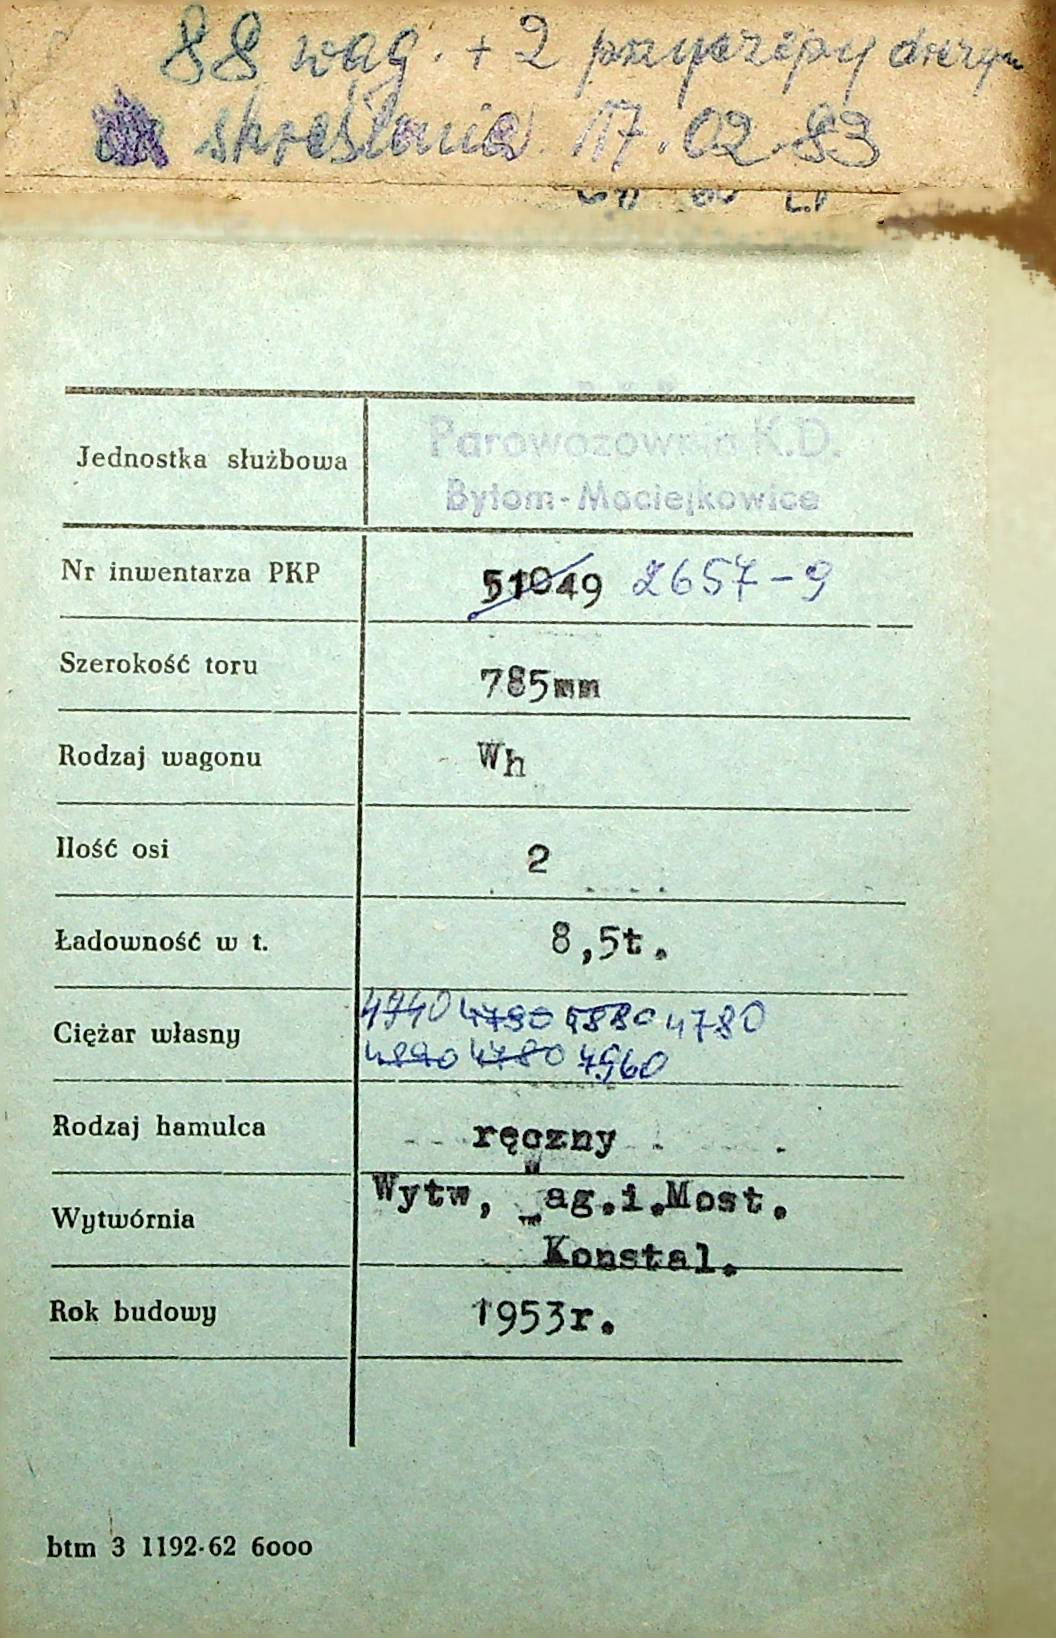 88 wag. + 2 przyczepy drezyn
skreślenie 17.02.83
Jednostka służbowa
Parowozownia K.D.
Bytom-Maciejkowice
Nr inwentarza PKP 51049 2657-9
Szerokość toru 785mm
Rodzaj wagonu Wh
Ilość osi 2
Ładowność w t. 8,5t.
4940 4790 4880 4780
Ciężar własny
4890 4780 4960
Rodzaj hamulca ręczny
Wytw, Wag.i.Most.
Wytwórnia
Konstal.
Rok budowy 1953r.
btm 3 1192-62 6000